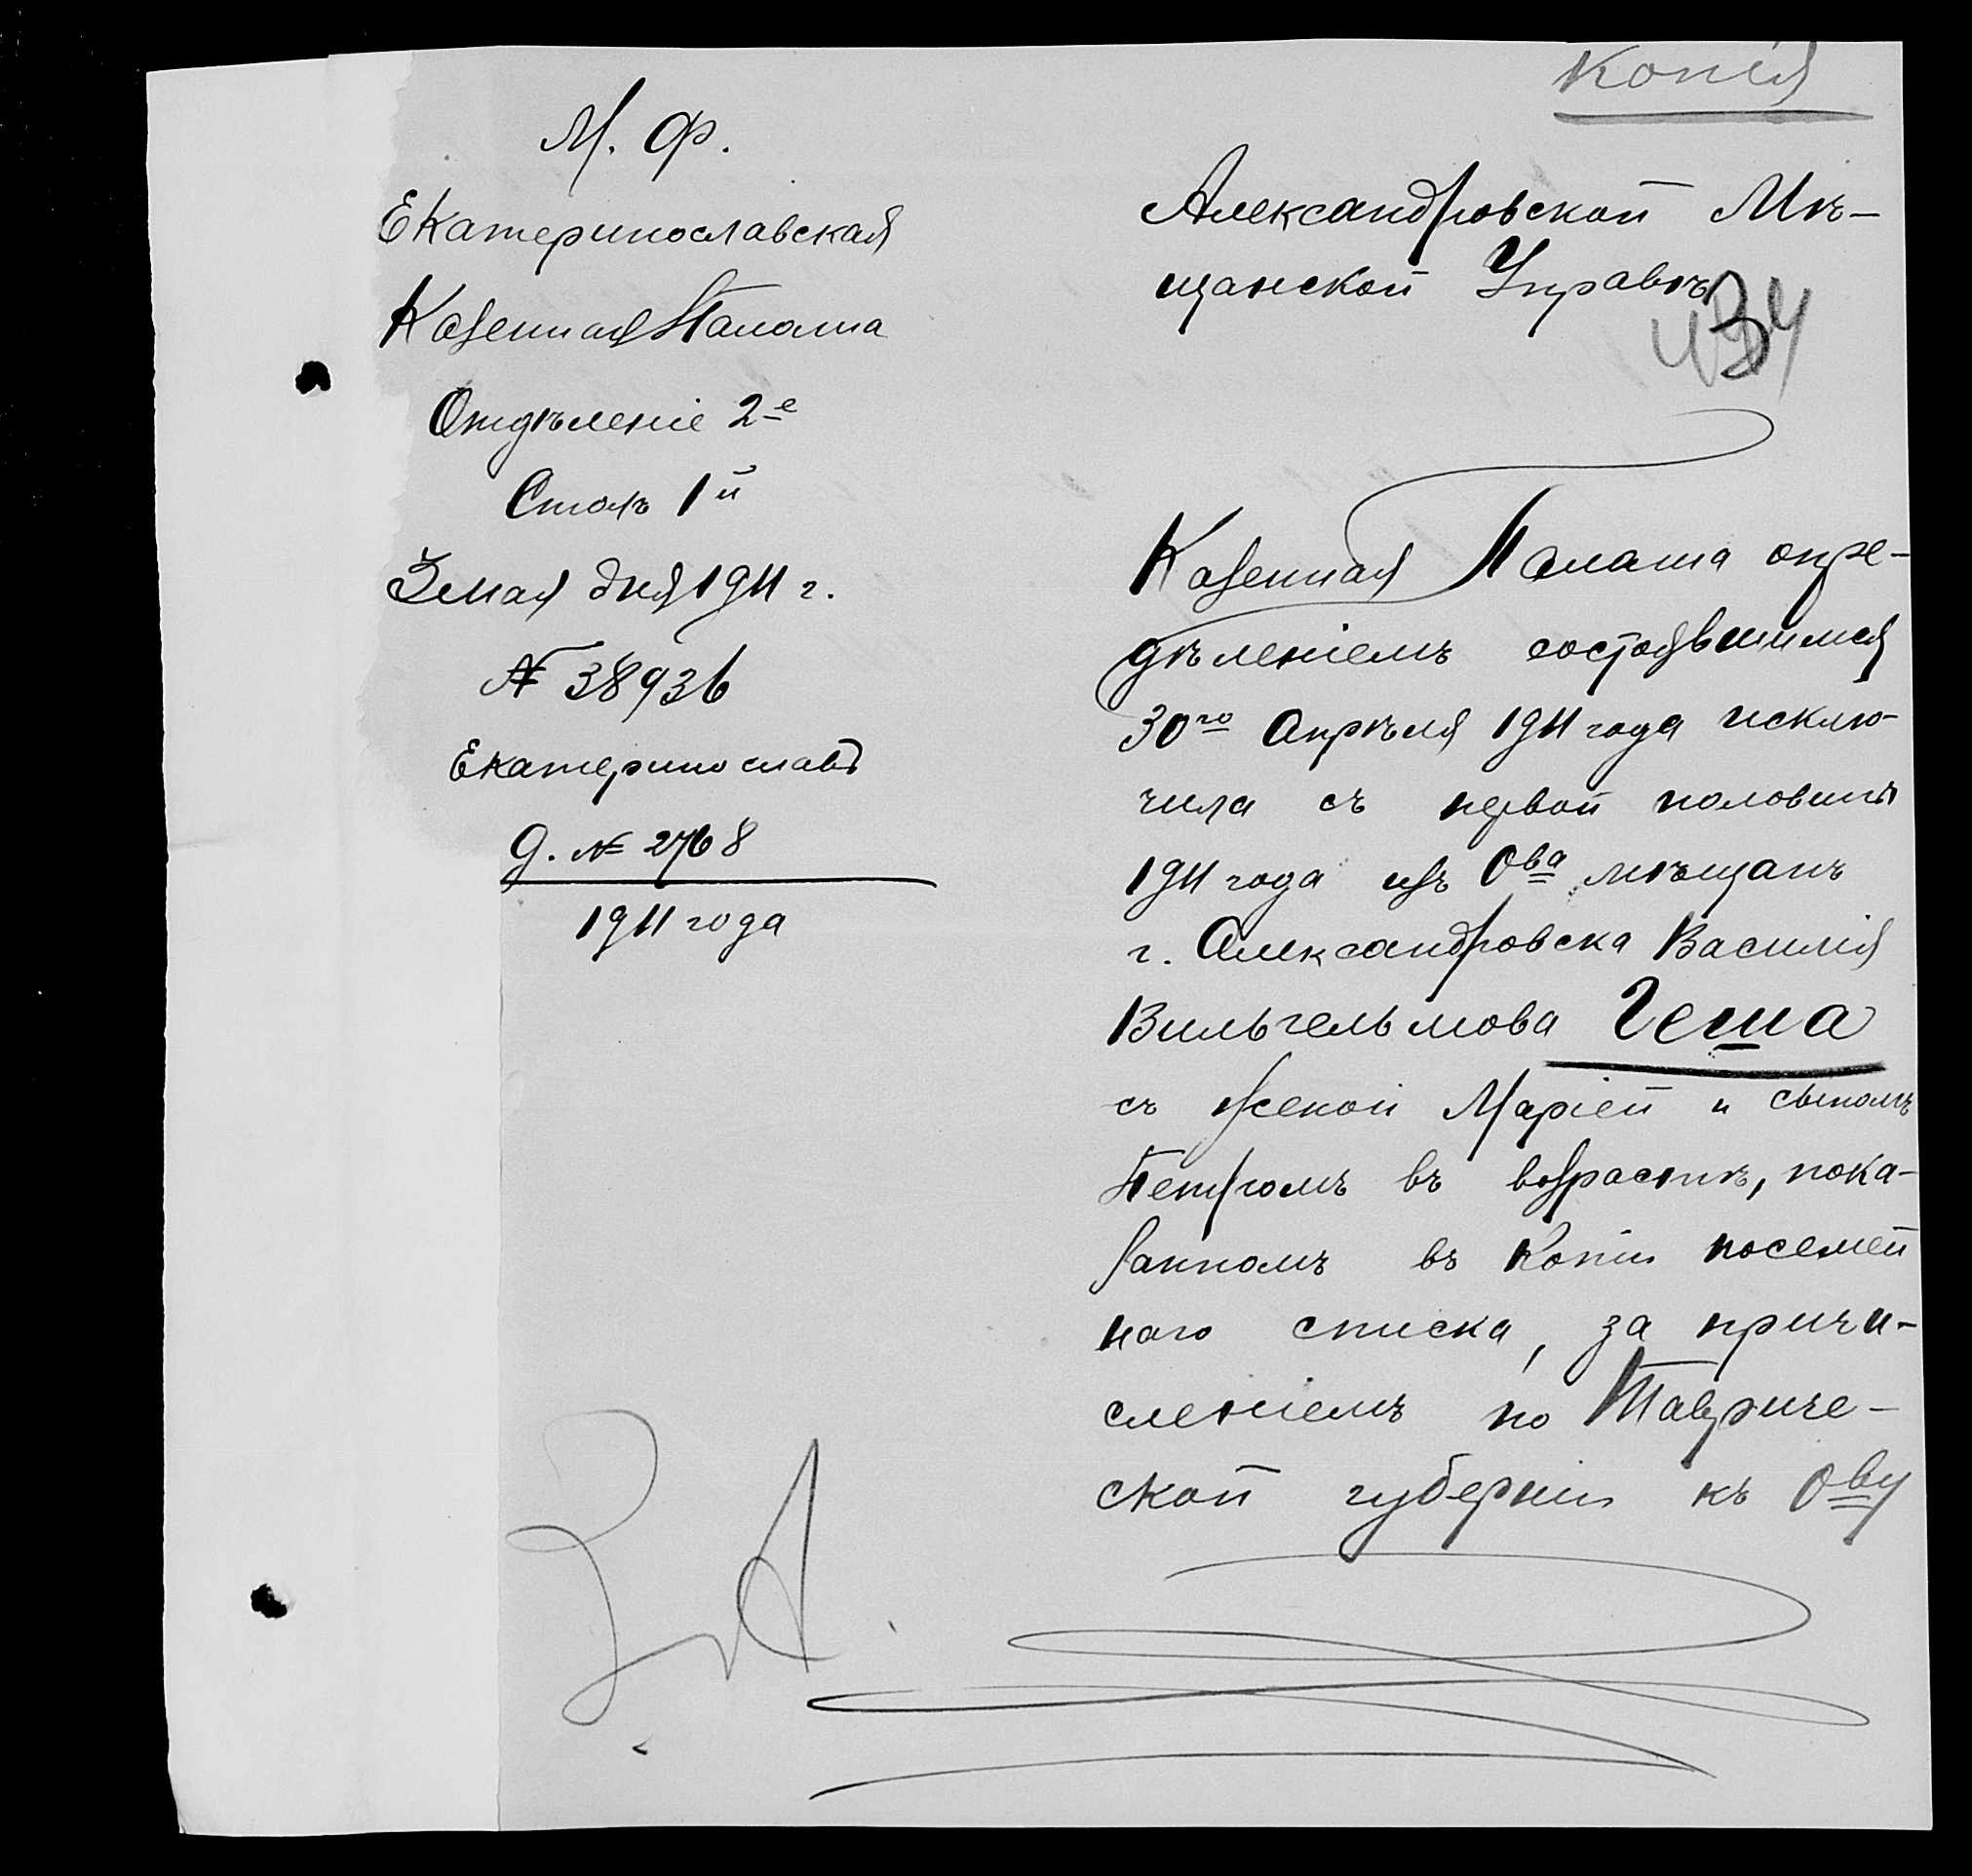 Копія
М. Ф.
Екатеринославская
Казенная Палата
Отдѣленіе 2-е
Столъ 1й
3 мая дня 1911 г.
№ 38936
Екатеринославъ
д. № 2768
1911 года
Александровской Мѣ-
щанской Управѣ
434
Казенная Палата опре-
дѣленіемъ состоявшимся
30го Апрѣля 1911 года исклю-
чила съ первой половины
1911 года изъ Ова мѣщанъ
г. Александровска Василія
Вильгельмова Геша
съ женой Маріей и сыномъ
Петромъ въ возрастѣ, пока-
занномъ въ копіи посемей
наго списка, за причи-
сленіемъ по Тавриче-
ской губерніи къ Ову